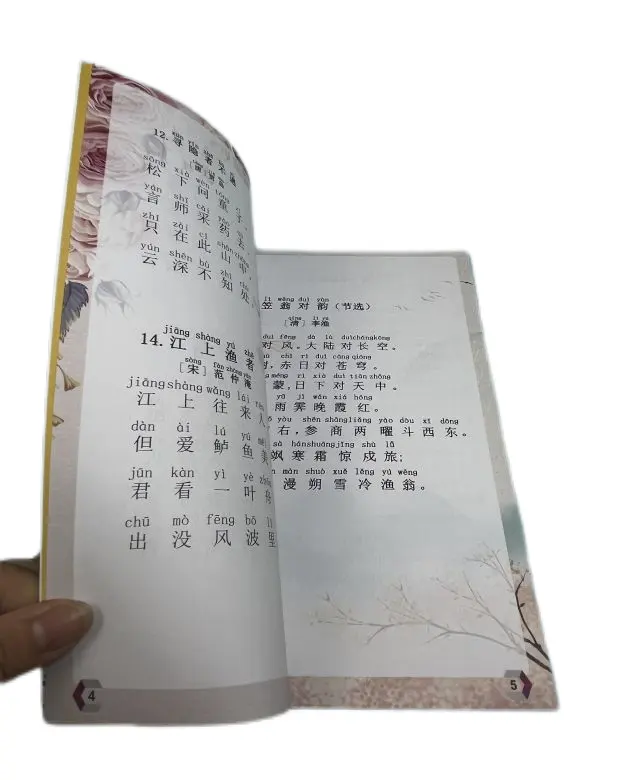 xún yǐn zhě bú
12.寻隐者不遇
[唐]贾岛
sōng xià wèn tóng
松下问童子，
yán shī cǎi yào
言师采药去
zhǐ zài cǐ shān zhōng
只在此山中，
yún shēn bù zhī chù
云深不知处
jiāng shàng yú zhě
14.江上渔者
sòng fàn zhòng yān
[宋]范仲淹
jiāng shàng wǎng lái rén
江上往来人
dàn ài lú yú
但爱鲈鱼美
jūn kàn yí yè
君看一叶舟
chū mò fēng bō lǐ
出没风波里
4
lì wēng duì yùn
笠翁对韵（节选）
qīng lǐ yú
[清]李渔
duì fēng dà lù duì cháng kōng
对风。大陆对长空。
chì rì duì cāng qióng
对，赤日对苍穹。
méng rì xià duì tiān zhōng
蒙，日下对天中。
yǔ jì wǎn xiá hóng
雨霁晚霞红。
yòu shēn shāng liǎng yào dǒu xī dōng
右，参商两曜斗西东。
sà hán shuāng jīng shù lǚ
飒寒霜惊戍旅；
màn shuò xuě lěng yú wēng
漫朔雪冷渔翁。
5